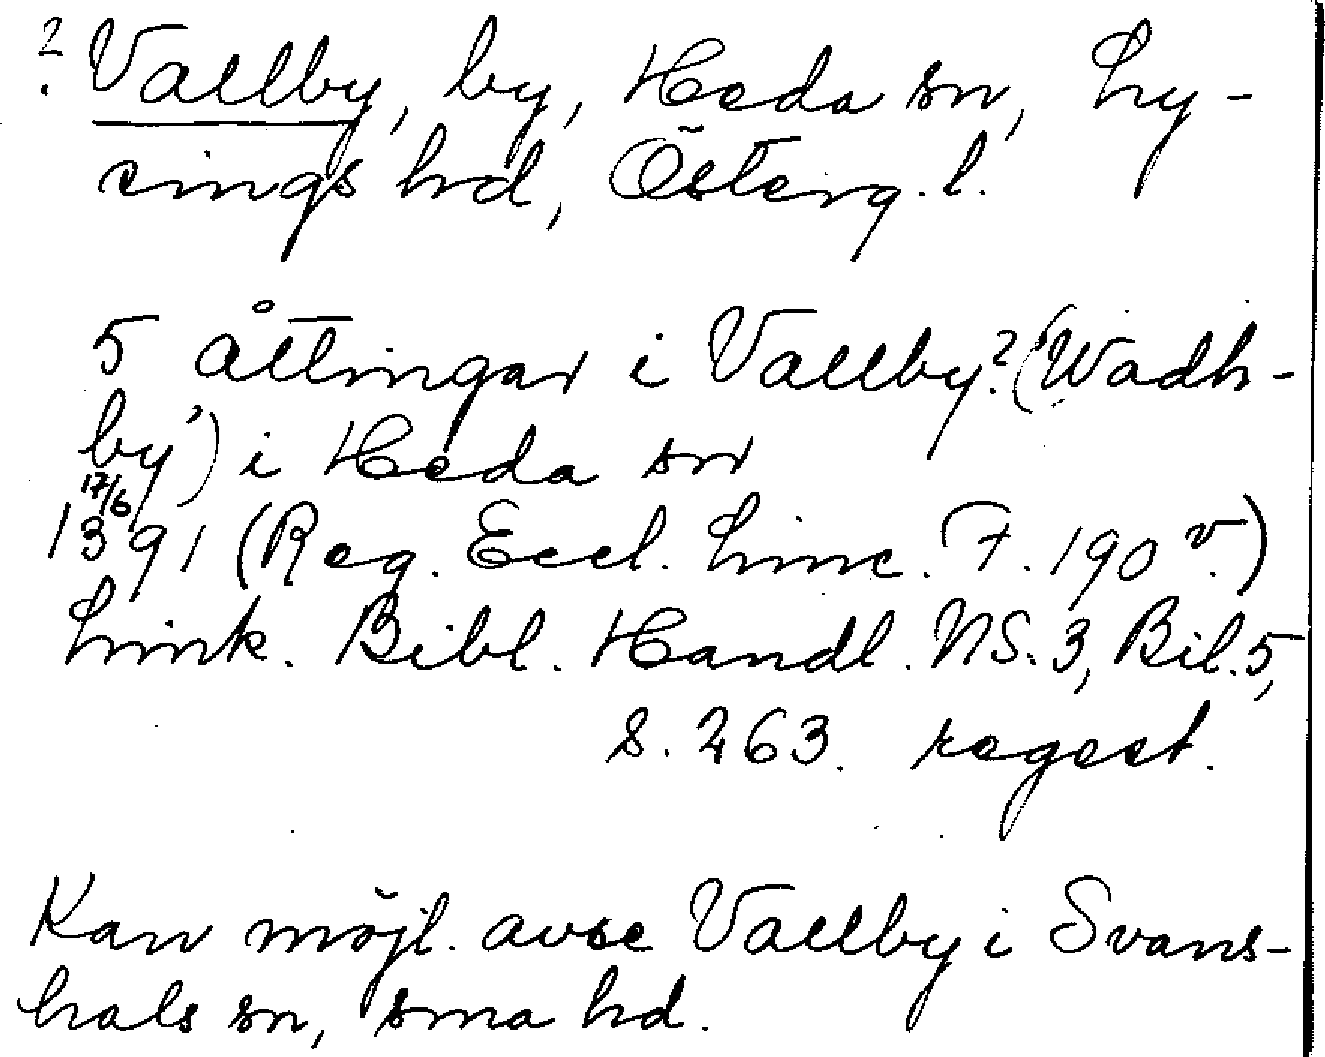 ? Vallby, by, Heda sn, Ly-
sings hd, Österg. l.
5 åttingar i Vallby? ('Wadh-
by') i Heda sn
17/6
1391 (Reg. Eccl. Linc. F. 190 v.)
Link. Bibl. Handl. NS. 3, Bil. 5,
s. 263. regest.
Kan möjl. avse Vallby i Svans-
hals sn, sma hd.